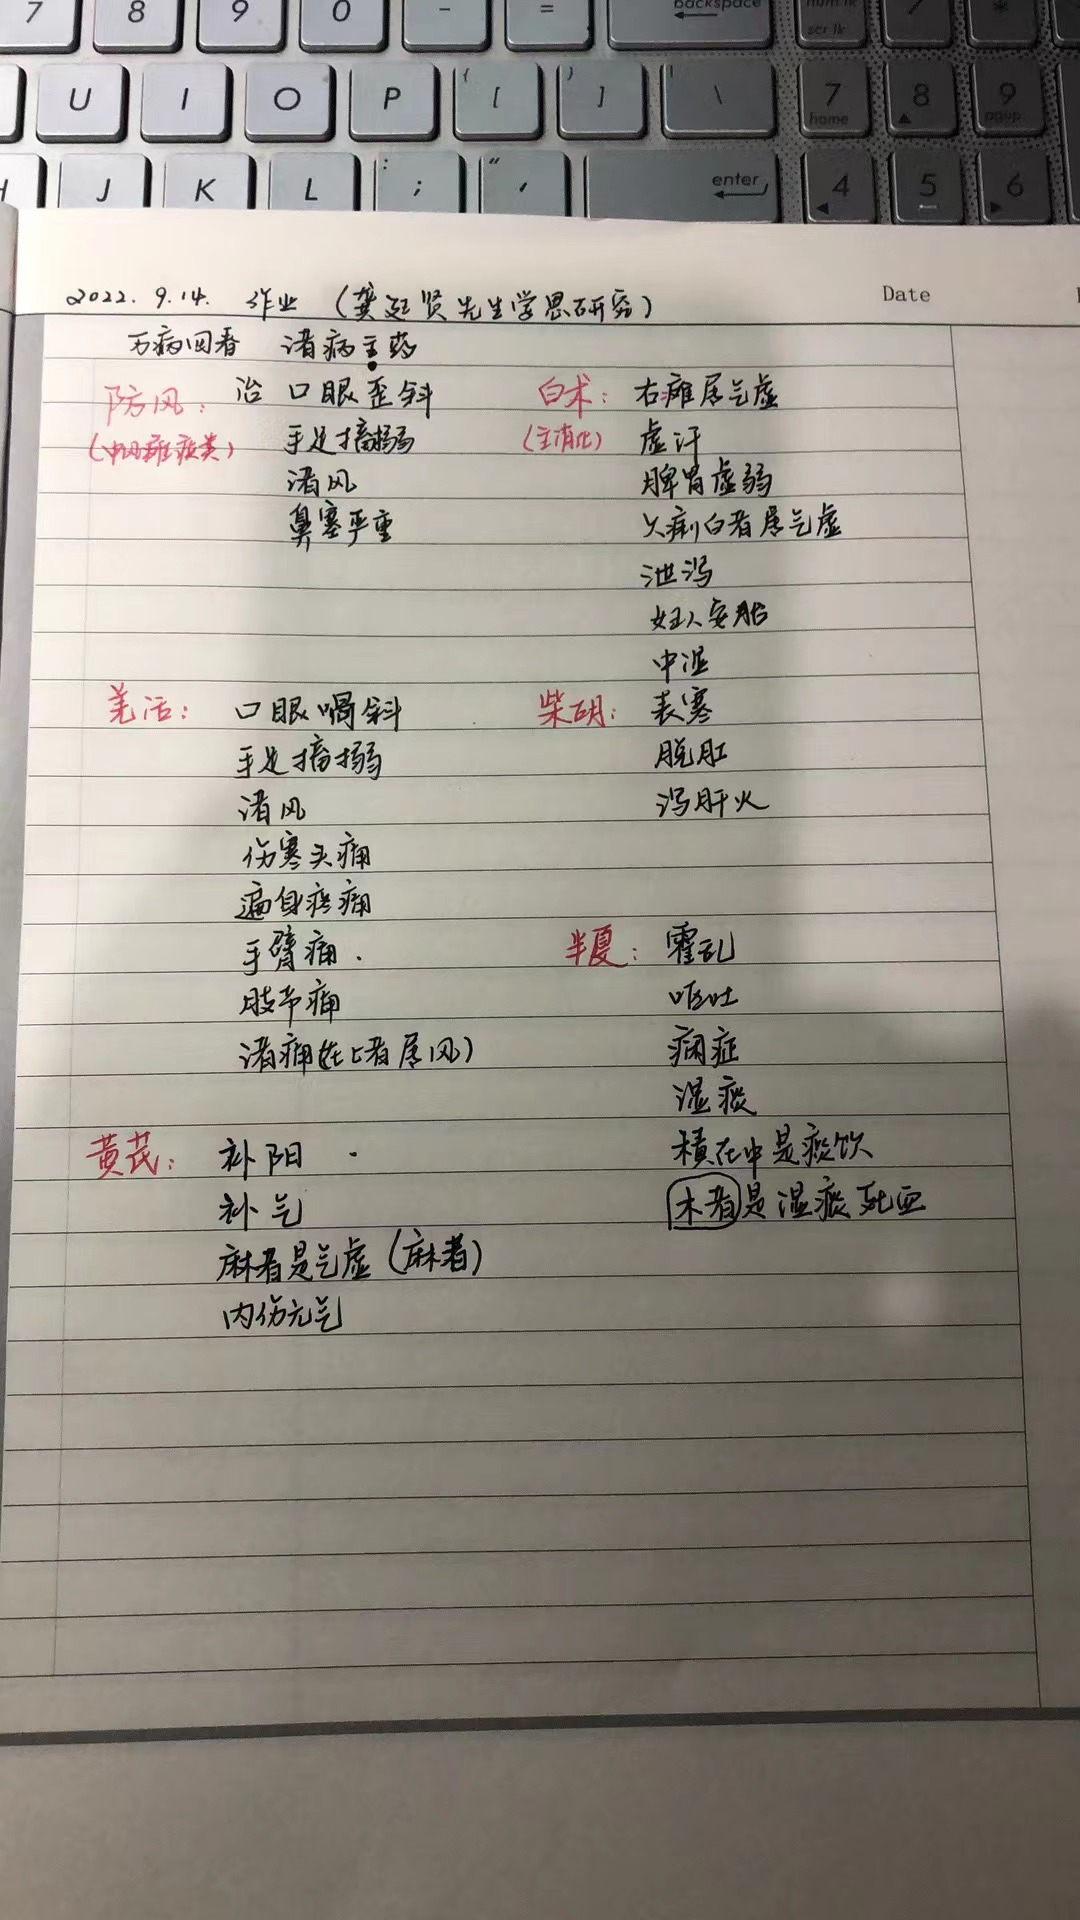 7 8 9 0 - = backspace num lk scr lk / *
U I O P { [ } ] | \ 7 home 8 9 pgup
H J K L : ; " ' enter 4 5 6
2022.9.14. 作业 (龚廷贤先生学思研究) Date
万病回春 诸病主药
防风: 治 口眼歪斜
手足搐搦
诸风
鼻塞严重
白术: 右瘫属气虚
(主消化) 虚汗
脾胃虚弱
久痢白者属气虚
泄泻
妇人安胎
中湿
羌活: 口眼喎斜
手足搐搦
诸风
伤寒头痛
遍身疼痛
手臂痛.
肢节痛
诸痛(在上者属风)
柴胡: 表寒
脱肛
泻肝火
半夏: 霍乱
呕吐
痫症
湿痰
積在中是痰饮
木者是湿痰死血
黄芪: 补阳
补气
麻者是气虚(麻者)
内伤元气